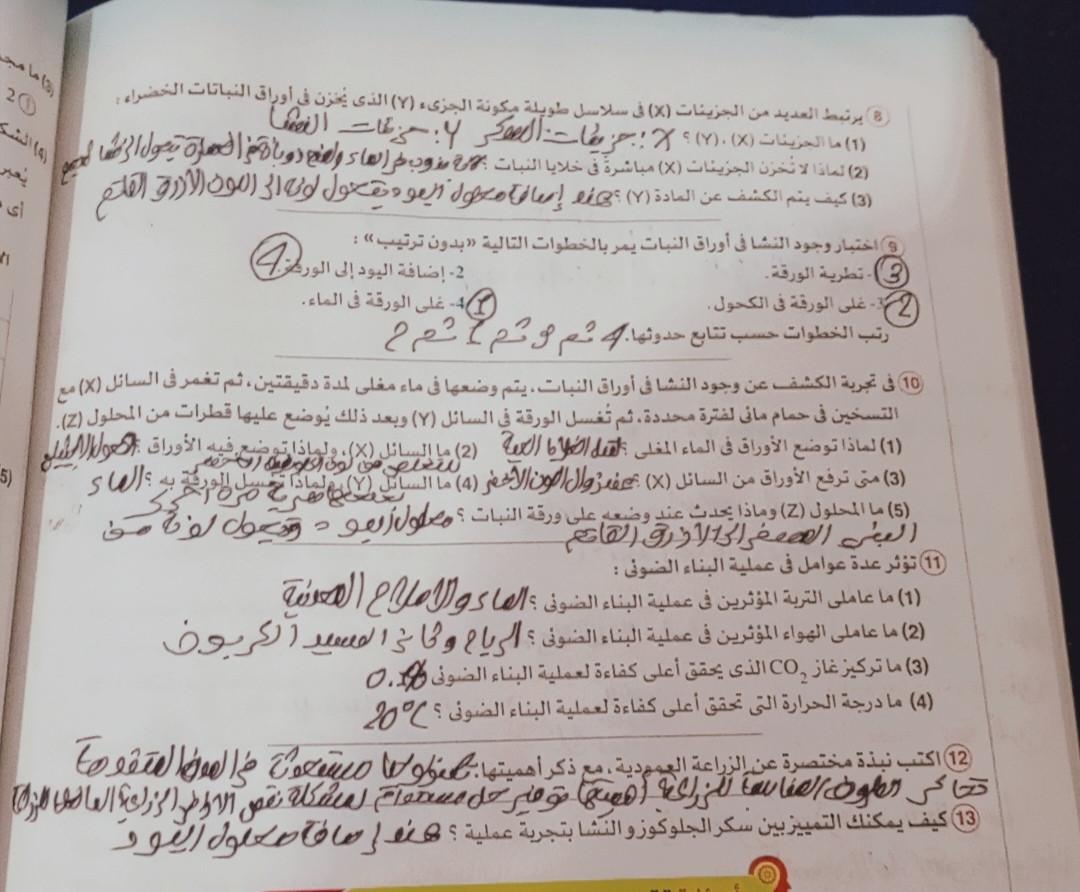 (3) ما
2 ①
(4) الشك
يُعبر
أى
(5)
8 يرتبط العديد من الجزيئات (X) فى سلاسل طويلة مكونة الجزىء (Y) الذى يُخزن فى أوراق النباتات الخضراء :
(1) ما الجزيئات (X) ، (Y) ؟ X : جزيئات السكر Y : جزيئات النشا
(2) لماذا لا تُخزن الجزيئات (X) مباشرةً فى خلايا النبات ؟
(3) كيف يتم الكشف عن المادة (Y) ؟ عند إضافة محلول اليود يتحول لونه الى اللون الأزرق القاتم
9 اختبار وجود النشا فى أوراق النبات يُمر بالخطوات التالية «بدون ترتيب» :
3 - تطرية الورقة. 2- إضافة اليود إلى الورقة. 4
2 3- غلى الورقة فى الكحول. 1 4- غلى الورقة فى الماء.
رتب الخطوات حسب تتابع حدوثها. 4 ثم 3 ثم 1 ثم 2
10 فى تجربة الكشف عن وجود النشا فى أوراق النبات، يتم وضعها فى ماء مغلى لمدة دقيقتين، ثم تغمر فى السائل (X) مع
التسخين فى حمام مائى لفترة محددة، ثم تُغسل الورقة فى السائل (Y) وبعد ذلك يُوضع عليها قطرات من المحلول (Z).
(1) لماذا توضع الأوراق فى الماء المغلى ؟ لقتل الخلايا الحية (2) ما السائل (X)، ولماذا توضع فيه الأوراق ؟ الكحول الإيثيلى
للتخلص من لون
(3) متى ترفع الأوراق من السائل (X) ؟ عند زوال اللون الأخضر (4) ما السائل (Y)، ولماذا تغسل الورقة به ؟ الماء
لجعلها طرية مرة أخرى
(5) ما المحلول (Z) وماذا يحدث عند وضعه على ورقة النبات ؟ محلول اليود ويتحول لونه من
البنى المصفر الى الأزرق القاتم
11 تؤثر عدة عوامل فى عملية البناء الضوئى :
(1) ما عاملى التربة المؤثرين فى عملية البناء الضوئى ؟ الماء والاملاح المعدنية
(2) ما عاملى الهواء المؤثرين فى عملية البناء الضوئى ؟ الرياح وثانى اكسيد الكربون
(3) ما تركيز غاز CO₂ الذى يحقق أعلى كفاءة لعملية البناء الضوئى
(4) ما درجة الحرارة التى تحقق أعلى كفاءة لعملية البناء الضوئى ؟ 20°C
12 اكتب نبذة مختصرة عن الزراعة العمودية، مع ذكر أهميتها: تكنولوجيا مستحدثة فى المدن المتقدمة
تحاكى الظروف المناسبة للزراعة أهميتها توفير حل مستدام لمشكلة نقص الاراضى الزراعية
13 كيف يمكنك التمييز بين سكر الجلوكوز و النشا بتجربة عملية ؟ عند إضافة محلول اليود